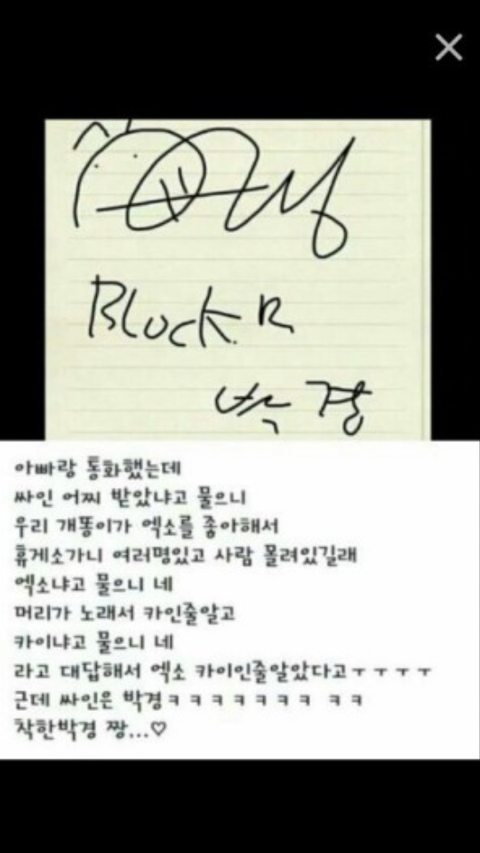 Block B
박경
아빠랑 통화했는데
싸인 어찌 받았냐고 물으니
우리 개똥이가 엑소를 좋아해서
휴게소가니 여러명있고 사람 몰려있길래
엑소냐고 물으니 네
머리가 노래서 카인줄알고
카이냐고 물으니 네
라고 대답해서 엑소 카이인줄알았다고ㅜㅜㅜㅜ
근데 싸인은 박경ㅋㅋㅋㅋㅋㅋㅋ ㅋㅋ
착한박경 짱...♡